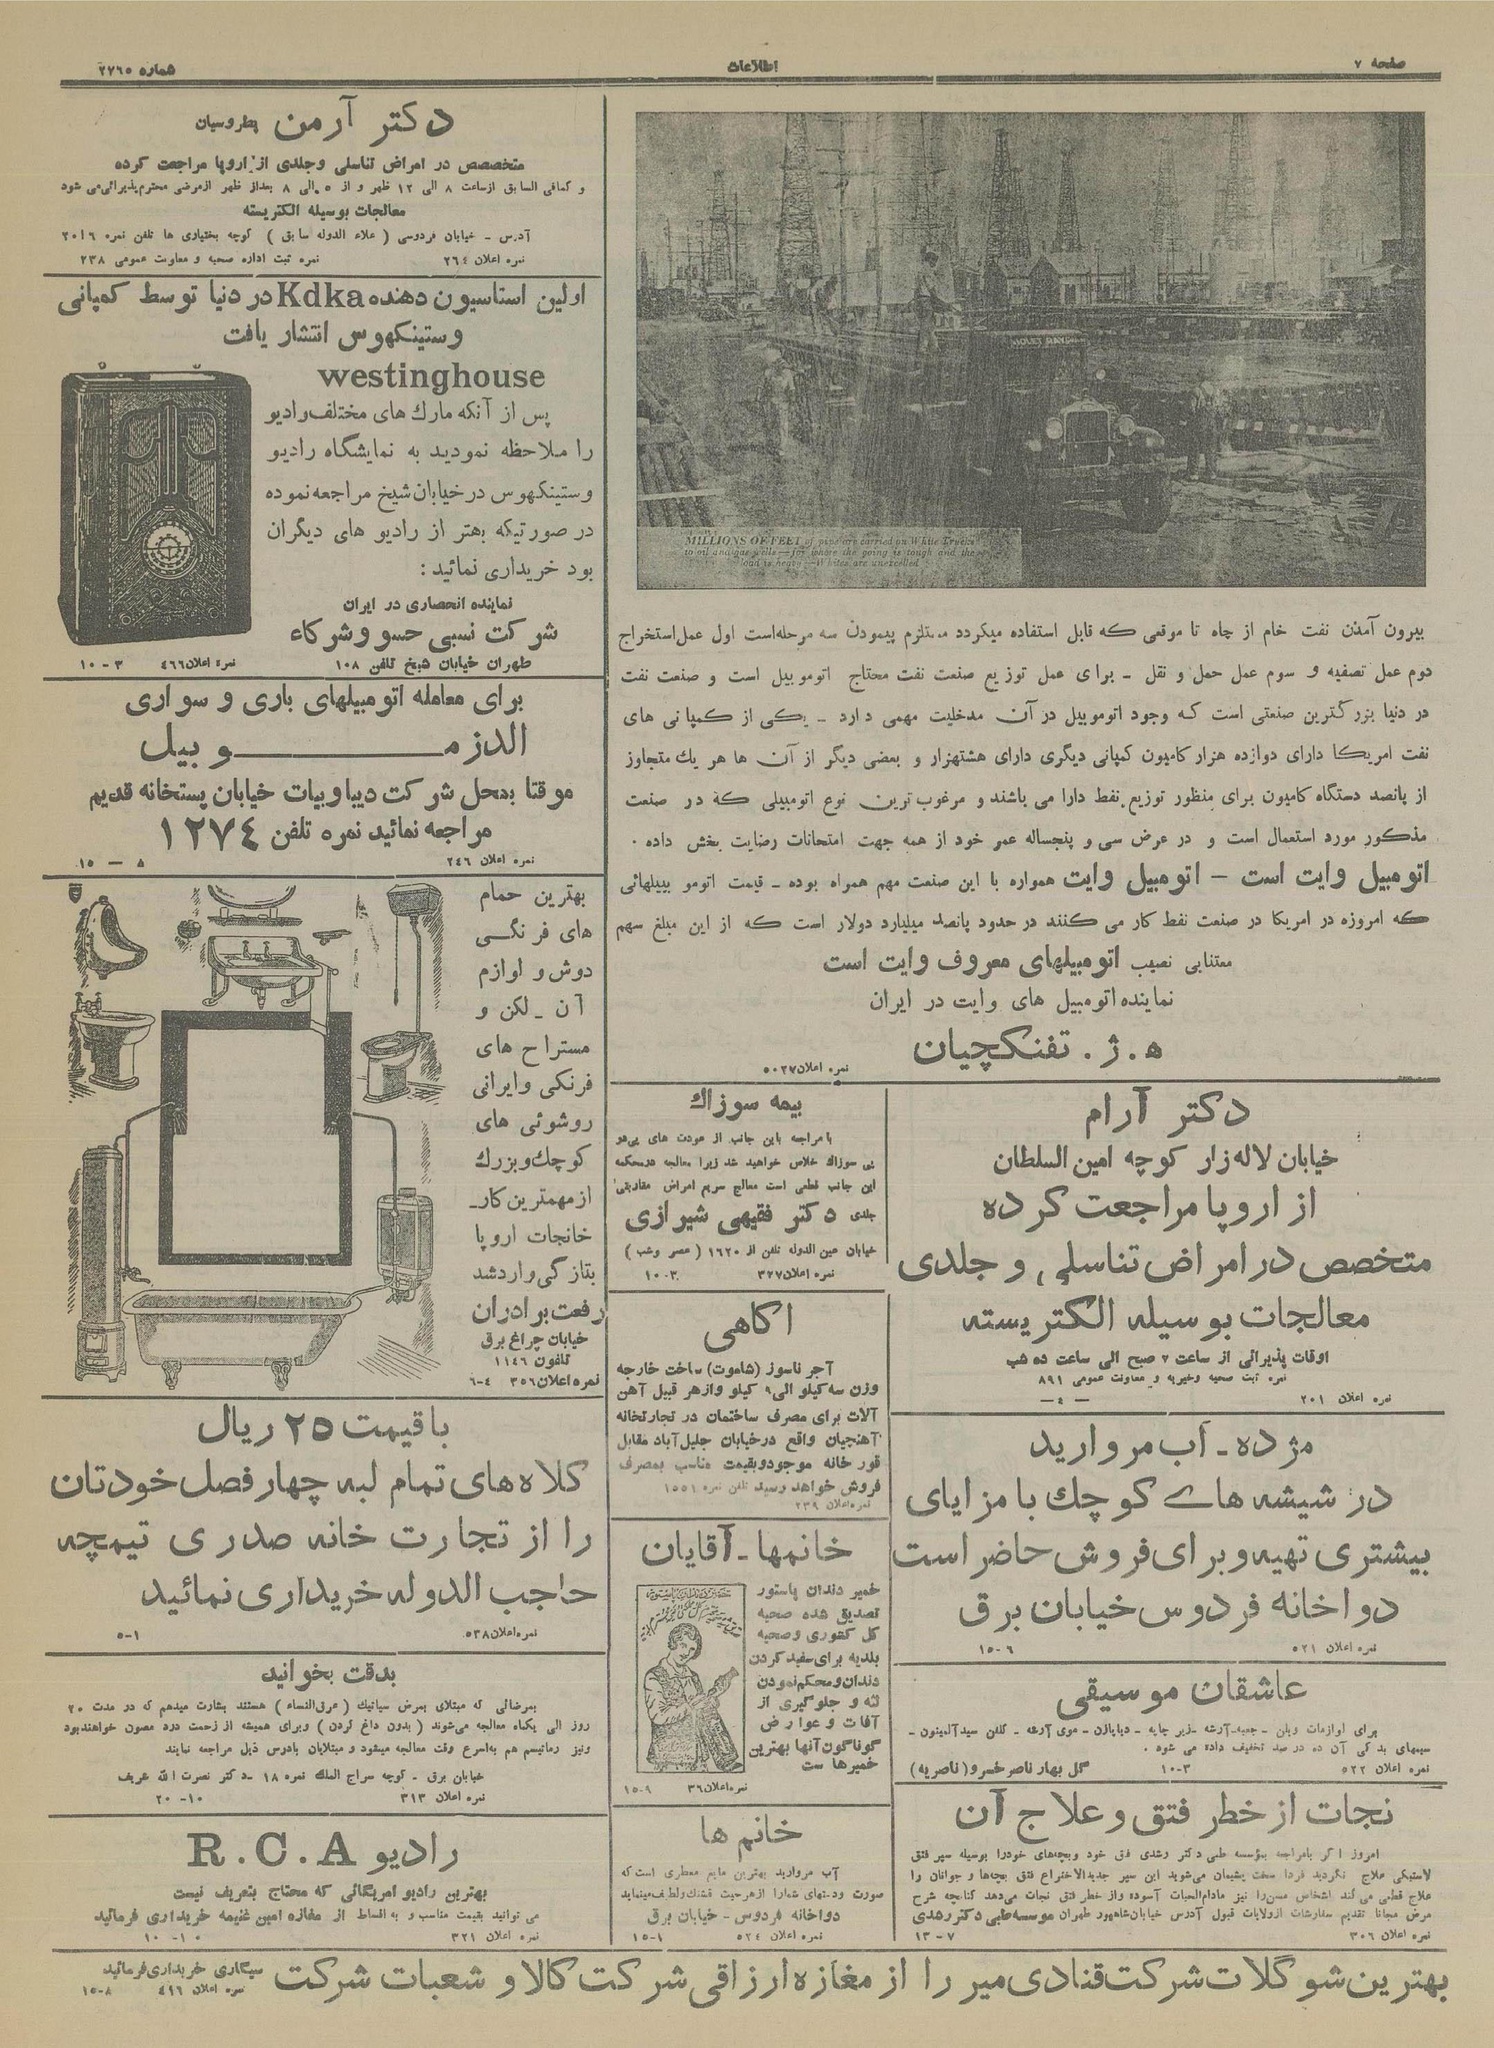 صفحه ۷
اطلاعات
شماره ۲۷۶۵
MILLIONS OF FEET of pipe are carried on White Trucks
to oil and gas wells—for where the going is tough and the
load is heavy—Whites are unexcelled
بیرون آمدن نفت خام از چاه تا موقعی که قابل استفاده میگردد مستلزم پیمودن سه مرحله‌است اول عمل استخراج
دوم عمل تصفیه و سوم عمل حمل و نقل - برای عمل توزیع صنعت نفت محتاج اتوموبیل است و صنعت نفت
در دنیا بزرگترین صنعتی است که وجود اتوموبیل در آن مدخلیت مهمی دارد - یکی از کمپانی های
نفت امریکا دارای دوازده هزار کامیون کمپانی دیگری دارای هشتهزار و بعضی دیگر از آن ها هر یك متجاوز
از پانصد دستگاه کامیون برای منظور توزیع نفط دارا می باشند و مرغوب ترین نوع اتومبیلی که در صنعت
مذکور مورد استعمال است و در عرض سی و پنجساله عمر خود از همه جهت امتحانات رضایت بخش داده .
اتومبیل وایت است - اتومبیل وایت همواره با این صنعت مهم همراه بوده - قیمت اتومو بیلهائی
که امروزه در امریکا در صنعت نفط کار می کنند در حدود پانصد میلیارد دولار است که از این مبلغ سهم
معتنابی نصیب اتومبیلهای معروف وایت است
نماینده اتومبیل های وایت در ایران
ه . ژ . تفنکچیان
نمره اعلان ۵۰۲۷
دکتر آرام
خیابان لاله زار کوچه امین السلطان
از اروپا مراجعت کرده
متخصص در امراض تناسلی و جلدی
معالجات بوسیله الکتریسته
اوقات پذیرائی از ساعت ۷ صبح الی ساعت ده شب
نمره ثبت صحیه وخیریه و معاونت عمومی ۸۹۱
نمره اعلان ۲۰۱
-۴-
مژده - آب مروارید
در شیشه های کوچك با مزایای
بیشتری تهیه و برای فروش حاضر است
دواخانه فردوس خیابان برق
نمره اعلان ۵۲۱
۱۵-۶
عاشقان موسیقی
برای لوازمات ویلن - جعبه-آرشه -زیر چانه - دیاپازن - موی آرشه - کلفن سیدآلمینون -
سیمهای یدکی آن ده در صد تخفیف داده می شود .
گل بهار ناصر خسرو (ناصریه)
نمره اعلان ۵۲۲
۱۰-۳
نجات از خطر فتق و علاج آن
امروز اگر بامراجعه بمؤسسه طبی دکتر رشدی فتق خود وبچه‌های خودرا بوسیله سپر فتق
لاستیکی علاج نکردید فردا سخت پشیمان می‌شوید این سپر جدیدالاختراع فتق بچه‌ها و جوانان را
علاج قطعی می کند اشخاص مسن‌را نیز مادام‌الحیات آسوده و از خطر فتق نجات می‌دهد کتابچه شرح
مرض مجانا تقدیم سفارشات ازولایات قبول آدرس خیابان‌شاهپور طهران موسسه‌طبی دکتر رشدی
نمره اعلان ۳۰۶
۱۳-۷
بیمه سوزاك
با مراجعه باین جانب از عودت های پی‌در
پی سوزاك خلاص خواهید شد زیرا معالجه درمحکمه
این جانب قطعی است معالج سریع امراض مقاربتی
جلدی دکتر فقیهی شیرازی
خیابان عین الدوله تلفن از ۱۶۲۰ (عصر وشب)
نمره اعلان ۳۲۷
۱۰-۳
اگاهی
آجر ناسوز (شاموت) ساخت خارجه
وزن سه کیلو الی ۹ کیلو وازهر قبیل آهن
آلات برای مصرف ساختمان در تجارتخانه
آهنچیان واقع درخیابان جلیل‌آباد مقابل
قور خانه موجود وبقیمت مناسب بمصرف
فروش خواهد رسید تلفن نمره ۱۵۵۱
نمره اعلان ۲۳۹
خانمها - آقایان
خمیر دندان پاستور
تصدیق شده صحیه
کل کشوری وصحیه
بلدیه برای سفید کردن
دندان و محکم نمودن
لثه و جلوگیری از
آفات و عوارض
گوناگون آنها بهترین
خمیر ها ست
نمره اعلان ۳۶
۱۵-۹
خانم ها
آب مروارید بهترین مایع معطری است که
صورت ودستهای شمارا ازهرحیث قشنك ولطیف مینماید
دواخانه فردوس - خیابان برق
نمره اعلان ۵۲۴
۱۵-۱
دکتر آرمن پطروسیان
متخصصص در امراض تناسلی وجلدی از اروپا مراجعت کرده
و کمافی السابق ازساعت ۸ الی ۱۲ ظهر و از ۵ الی ۸ بعداز ظهر ازمرضی محترم پذیرائی می شود
معالجات بوسیله الکتریسته
آدرس - خیابان فردوسی ( علاء الدوله سابق ) کوچه بختیاری ها تلفن نمره ۲۰۱۶
نمره اعلان ۲۶۴
نمره ثبت اداره صحیه و معاونت عمومی ۲۳۸
اولین استاسیون دهنده Kdka در دنیا توسط کمپانی
وستینکهوس انتشار یافت
westinghouse
پس از آنکه مارك های مختلف رادیو
را ملاحظه نمودید به نمایشگاه رادیو
وستینکهوس درخیابان شیخ مراجعه نموده
در صورتیکه بهتر از رادیو های دیگران
بود خریداری نمائید :
نماینده انحصاری در ایران
شرکت نسبی حسو و شرکاء
طهران خیابان شیخ تلفن ۱۰۸
نمره اعلان ۴۶۶
۱۰-۳
برای معامله اتومبیلهای باری و سواری
الدزمــوبیل
موقتا بمحل شرکت دیباوبیات خیابان پستخانه قدیم
مراجعه نمائید نمره تلفن ۱۲۷۴
نمره اعلان ۲۴۶
۱۵-۸
بهترین حمام
های فرنگــی
دوش و لوازم
آن - لکن و
مستراح های
فرنکی وایرانی
روشوئی های
کوچك وبزرك
ازمهمترین کار-
خانجات اروپا
بتازگی وارد شد
رفعت برادران
خیابان چراغ برق
تلفون ۱۱۴۶
نمره اعلان ۳۵۶
۶-۴
با قیمت ۲۵ ریال
کلاه های تمام لبه چهار فصل خودتان
را از تجارت خانه صدری تیمچه
حاجب الدوله خریداری نمائید
نمره اعلان ۵۳۸
۵-۱
بدقت بخوانید
بمرضائی که مبتلای بمرض سیاتیك ( عرق‌النساء ) هستند بشارت میدهم که در مدت ۲۰
روز الی یکماه معالجه می‌شوند ( بدون داغ کردن ) وبرای همیشه از زحمت درد مصون خواهند بود
ونیز رماتیسم هم به‌اسرع وقت معالجه میشود و مبتلایان بادرس ذیل مراجعه نمایند
خیابان برق - کوچه سراج الملك نمره ۱۸ - دکتر نصرت الله عریف
نمره اعلان ۳۱۳
۲۰-۱۰
رادیو R.C.A
بهترین رادیو امریکائی که محتاج بتعریف نیست
می توانید بقیمت مناسب و به اقساط از مغازه امین غنیمه خریداری فرمائید
نمره اعلان ۳۲۱
۱۰-۱۰
بهترین شوگلات شرکت قنادی میر را از مغازه ارزاقی شرکت کالا و شعبات شرکت سیگاری خریداری فرمائید
نمره اعلان ۴۹۶
۱۵-۸